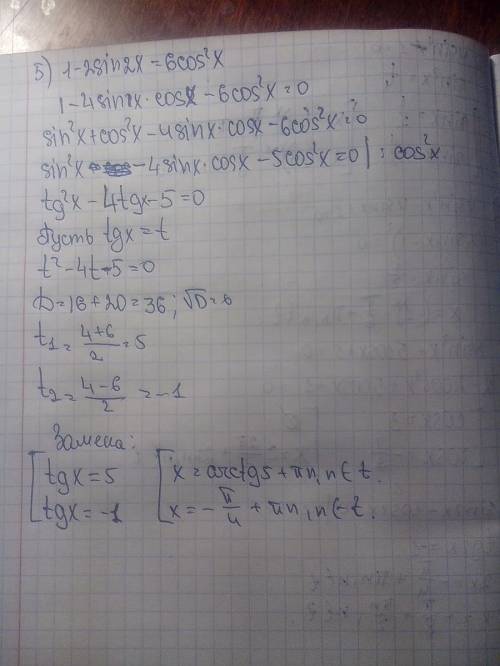 5) 1-2sin2x=6cos²x
1-4sinx·cosx-6cos²x=0
sin²x+cos²x-4sinx·cosx-6cos²x=0
sin²x -4sinx·cosx-5cos²x=0 | : cos²x
tg²x-4tgx-5=0
Пусть tgx=t
t²-4t-5=0
D=16+20=36; √D=6
t₁=(4+6)/2=5
t₂=(4-6)/2=-1
Замена:
[tgx=5 [x=arctg5+πn, n∈Z.
[tgx=-1 [x=-π/4+πn, n∈Z.